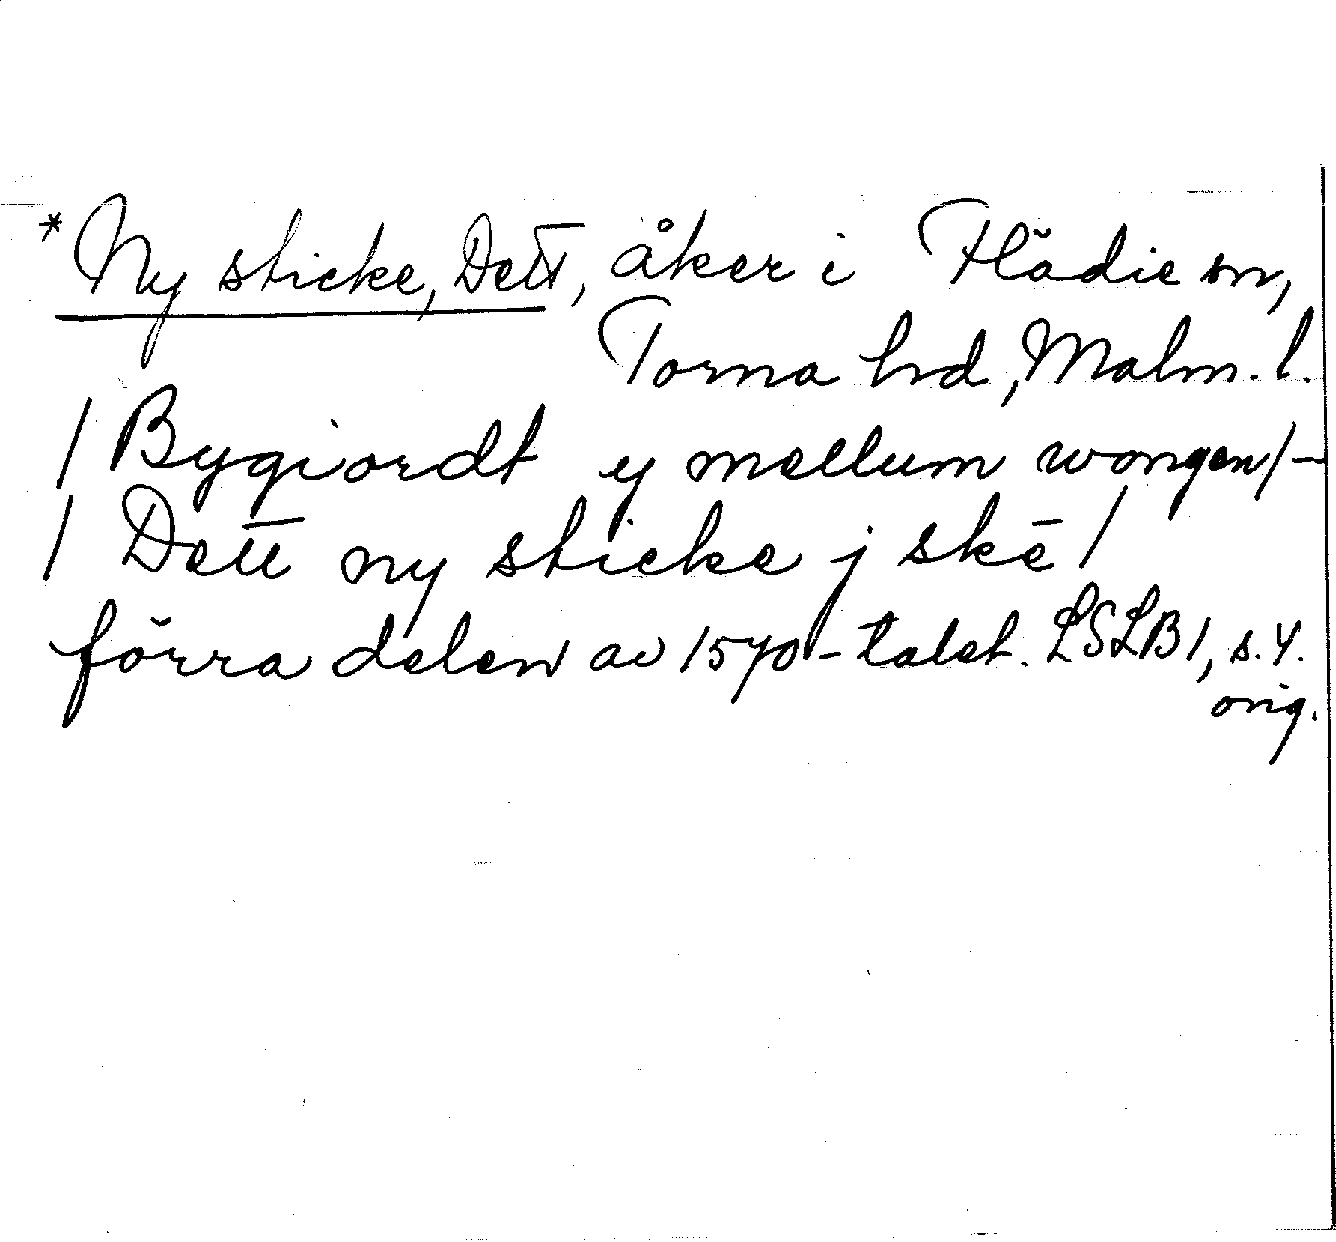 *Ny sticke, Dett, åker i Flädie sn,
Torna hrd, Malm. l.
/ Bygiordt y mellum wongen/-
/ Dett ny sticke j skē /
förra delen av 1570-talet. LSLB1, s.4.
orig.